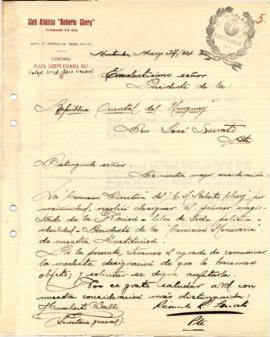 Club Atlético "Roberto Chery"
SECRETARIA
PLAZA INDEPENDENCIA 827
Montevideo, Marzo 27/924
Excelentísimo señor
Presidente de la
República Oriental del Uruguay
Don José Serrato
Distinguido señor:
De nuestra mayor consideración:
La Comisión Directiva del C. A. Roberto Chery, por
unanimidad, resolvió designar al primer magis-
trado de la Nación
Presidente de la Comisión Honoraria
de nuestra Institución.
Por la presente tenemos el agrado de comunicar
la modesta designación de que le hacemos
objeto, y solicitar se digne aceptarla.
Nos es grato saludar a Vd. con
nuestra consideración más distinguida.
Humberto
Secretario general
Pte